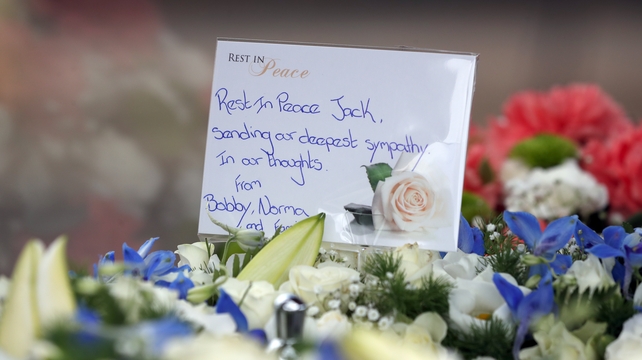 REST IN
Peace
Rest In Peace Jack,
sending our deepest sympathy
In our thoughts.
From
Bobby, Norma
and